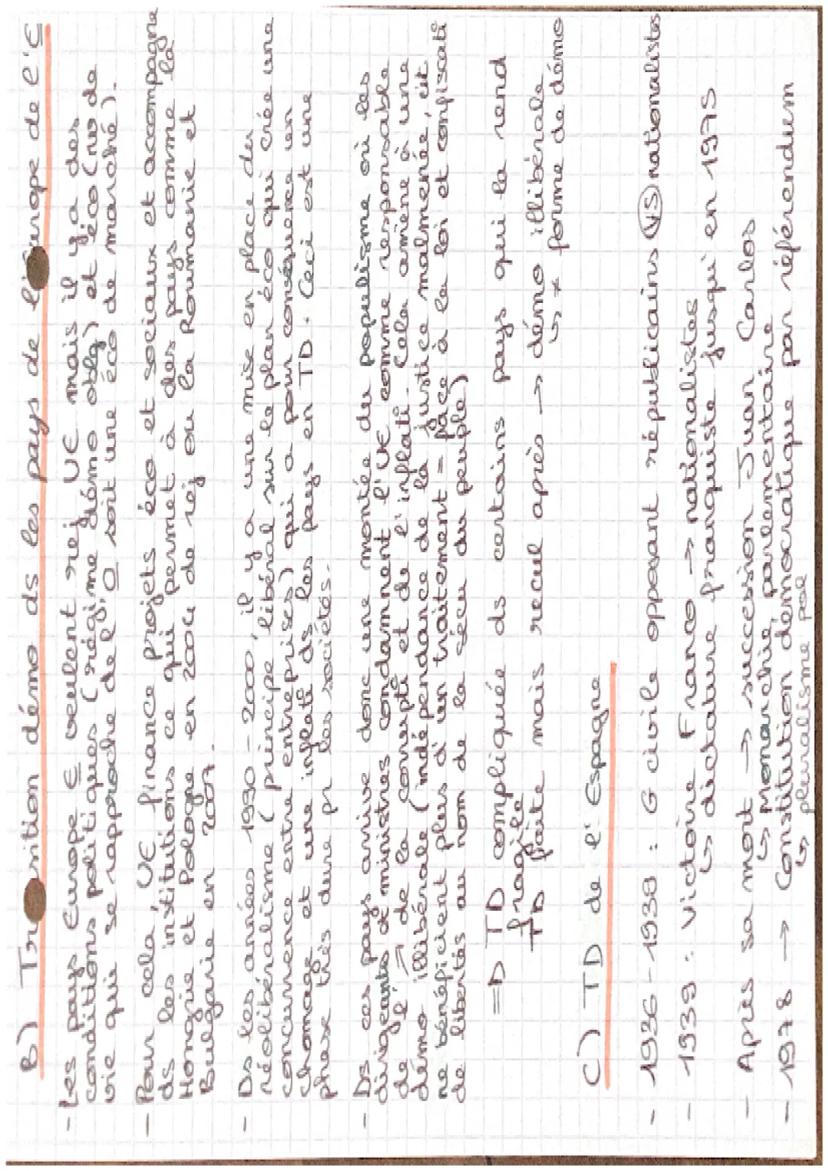 B) Transition démo ds les pays de l'Europe de l'E
- Les pays Europe E veulent rej UE mais il y a des
conditions politiques (régime démo oblg) et éco (nv de
vie qui se rapproche de l'O soit une éco de marché).
- Pour cela, UE finance projets éco et sociaux et accompagne
ds les institutions ce qui permet à des pays comme la
Hongrie et Pologne en 2004 de rej ou la Roumanie et
Bulgarie en 2007.
- Ds les années 1990-2000, il y a une mise en place du
néolibéralisme (principe libéral sur le plan éco qui crée une
concurrence entre entreprises) qui a pour conséquence un
chomage et une inflat° ds les pays en TD. Ceci est une
phase très dure pr les sociétés.
- Ds ces pays arrive donc une montée du populisme où les
dirigeants et ministres condamnent l'UE comme responsable
de l'↗ de la corrupt° et de l'inflat°. Cela amène à une
démo illibérale (indépendance de la justice malmenée, cit
ne bénéficient plus d'un traitement = face à la loi et confiscat°
de libertés au nom de la sécu du peuple)
=D TD compliquée ds certains pays qui la rend
fragile
TD faite mais recul après → démo illibérale
↳ ≠ forme de démo
C) TD de l'Espagne
- 1936-1939 : G civile opposant républicains VS nationalistes
- 1939 : Victoire Franco → nationalistes
↳ dictature franquiste jusqu'en 1975
- Après sa mort → succession Juan Carlos
↳ Monarchie parlementaire
- 1978 → Constitution démocratique par référendum
↳ pluralisme pol